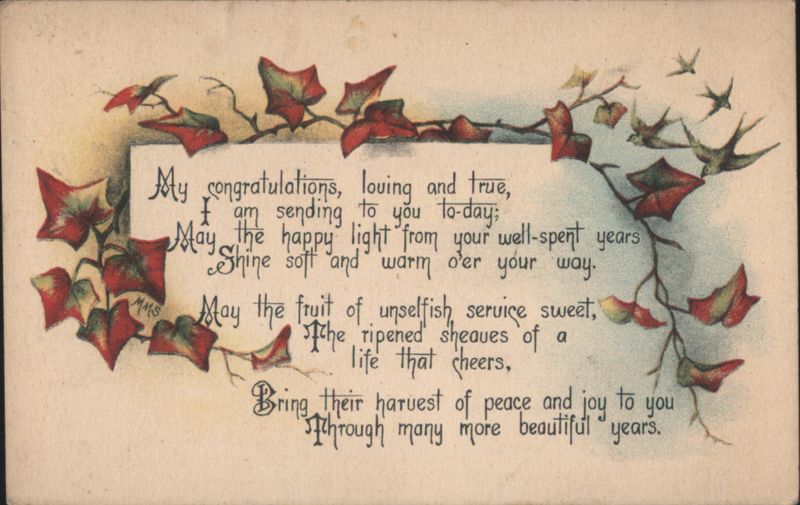 My congratulations, loving and true,
I am sending to you to-day;
May the happy light from your well-spent years
Shine soft and warm o'er your way.
May the fruit of unselfish service sweet,
The ripened sheaves of a
life that cheers,
Bring their harvest of peace and joy to you
Through many more beautiful years.
MMS